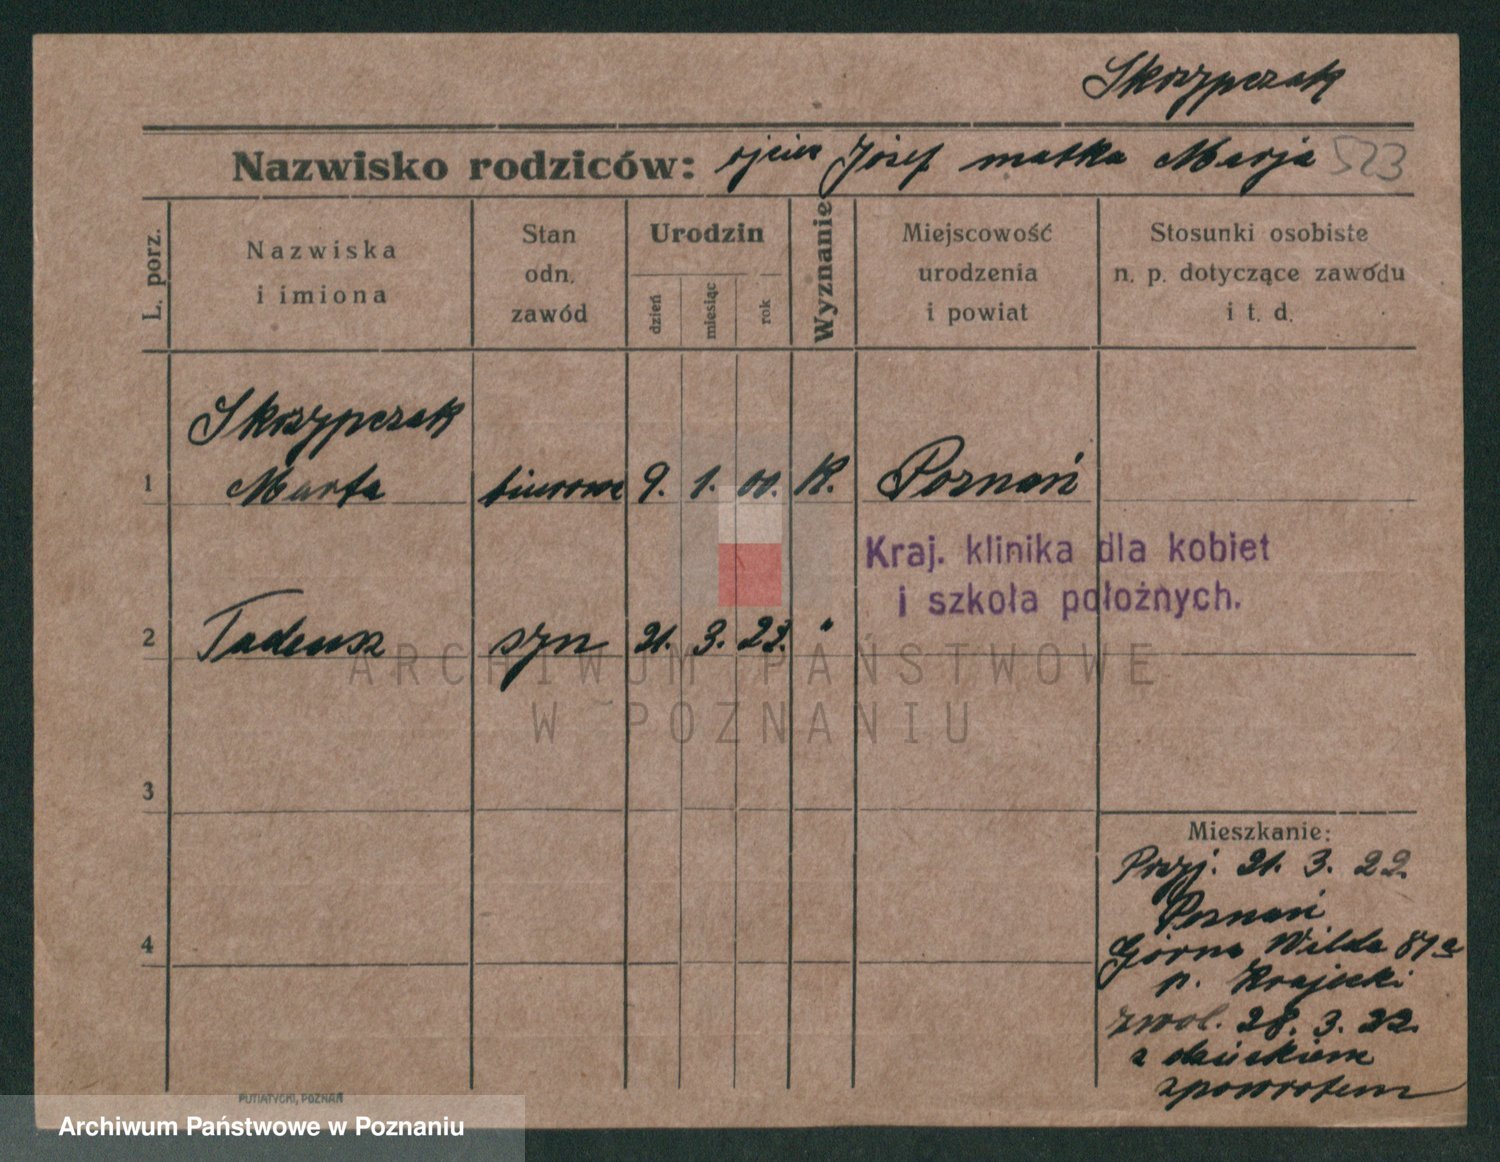 Skrzypczak
Nazwisko rodziców: ojciec Józef matka Marja 523
L. porz.
Nazwiska
i imiona
Stan
odn.
zawód
Urodzin
dzień
miesiąc
rok
Wyznanie
Miejscowość
urodzenia
i powiat
Stosunki osobiste
n. p. dotyczące zawodu
i t. d.
Skrzypczak
1 Marta biurowa 9. 1. 00. K. Poznań
Kraj. klinika dla kobiet
i szkoła położnych.
2 Tadeusz syn 21. 3. 22. "
ARCHIWUM PAŃSTWOWE
W POZNANIU
3
Mieszkanie:
Przyj. 21. 3. 22.
Poznań
Górna Wilda 87a
4
p. Krajecki
zwol. 28. 3. 22.
z dzieckiem
zpowrotem
PUTIATYCKI, POZNAŃ
Archiwum Państwowe w Poznaniu